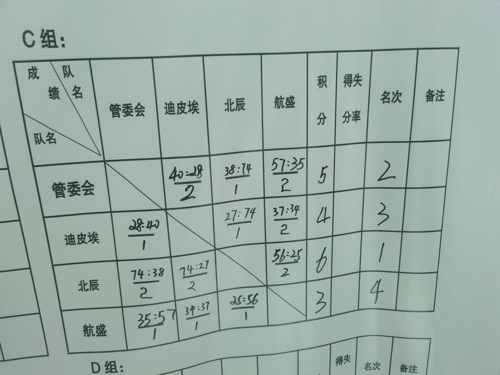 C组：
成绩 队名 队名 管委会 迪皮埃 北辰 航盛 积分 得失分率 名次 备注
管委会 40:28 2 38:74 1 57:35 2 5 2
迪皮埃 28:40 1 27:74 1 37:34 2 4 3
北辰 74:38 2 74:27 2 56:25 2 6 1
航盛 35:57 1 34:37 1 25:56 1 3 4
D组：
得失 名次 备注